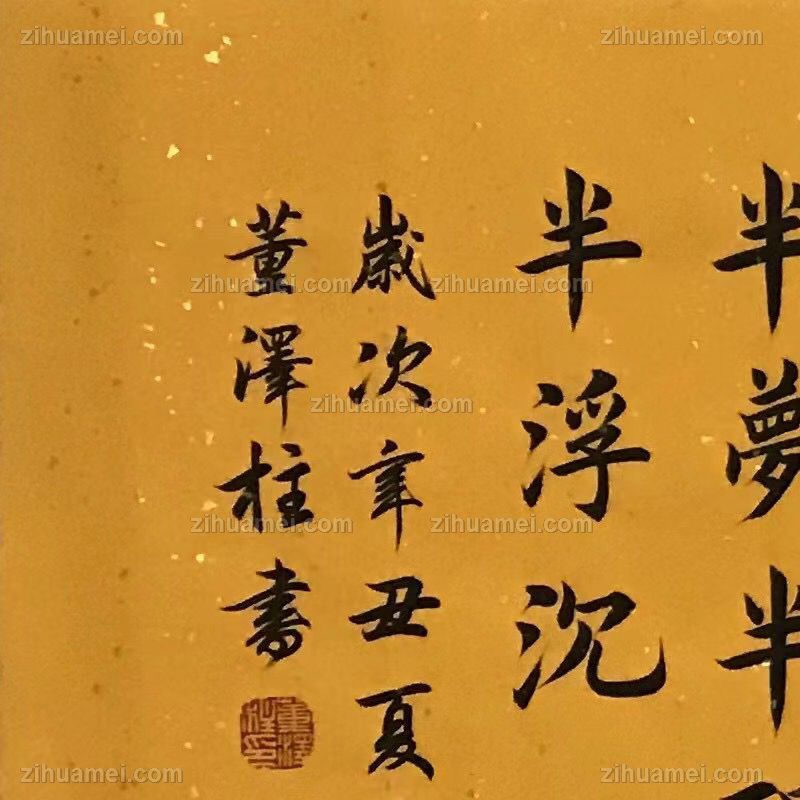 半夢半
半浮沉
歲次辛丑夏
董澤柱書
zihuamei.com
zihuamei.com
zihuamei.com
zihuamei.com
zihuamei.com
zihuamei.com
zihuamei.com
zihuamei.com
zihuamei.com